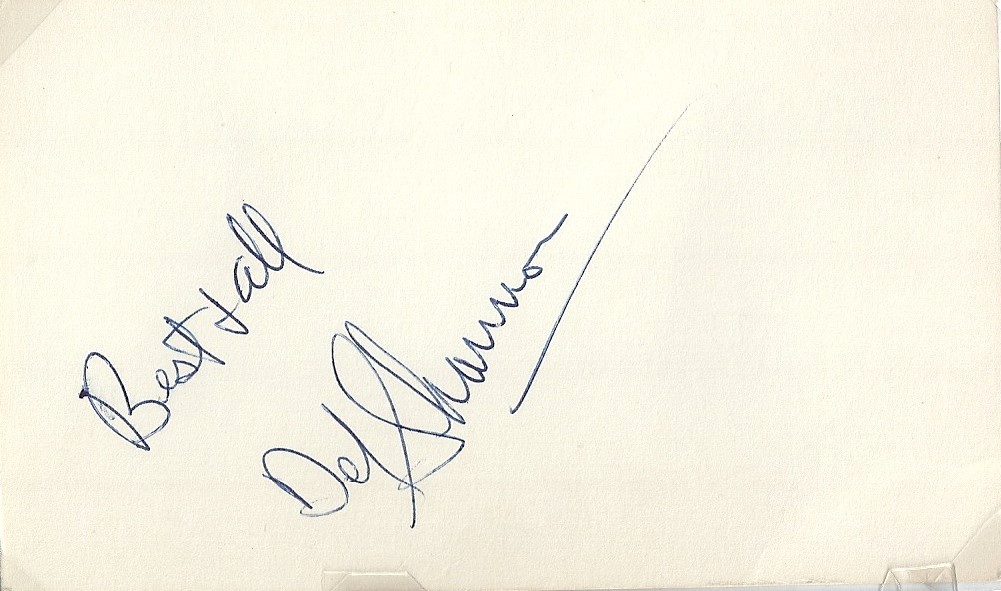 Best + all
Del Shannon